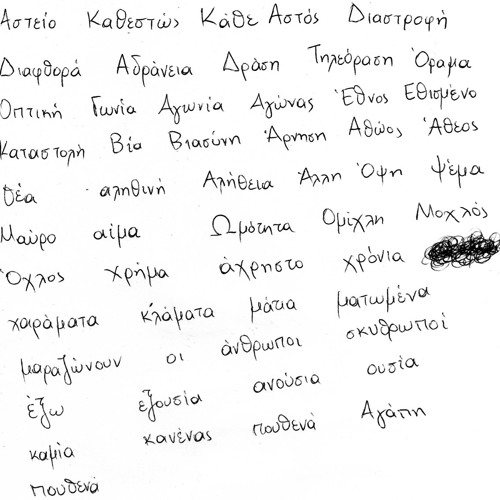 Αστείο Καθεστώς Κάθε Αστός Διαστροφή
Διαφθορά Αδράνεια Δράση Τηλεόραση Όραμα
Οπτική Γωνία Αγωνία Αγώνας Έθνος Εθισμένο
Καταστολή Βία Βιασύνη Άρνηση Αθώος Άθεος
Θέα αληθινή Αλήθεια Άλλη Όψη Ψέμα
Μαύρο αίμα Ωμότητα Ομίχλη Μοχλός
Όχλος χρήμα άχρηστο χρόνια
χαράματα κλάματα μάτια ματωμένα
μαραζώνουν οι άνθρωποι σκυθρωποί
έξω εξουσία ανούσια ουσία
καμία κανένας πουθενά Αγάπη
πουθενά